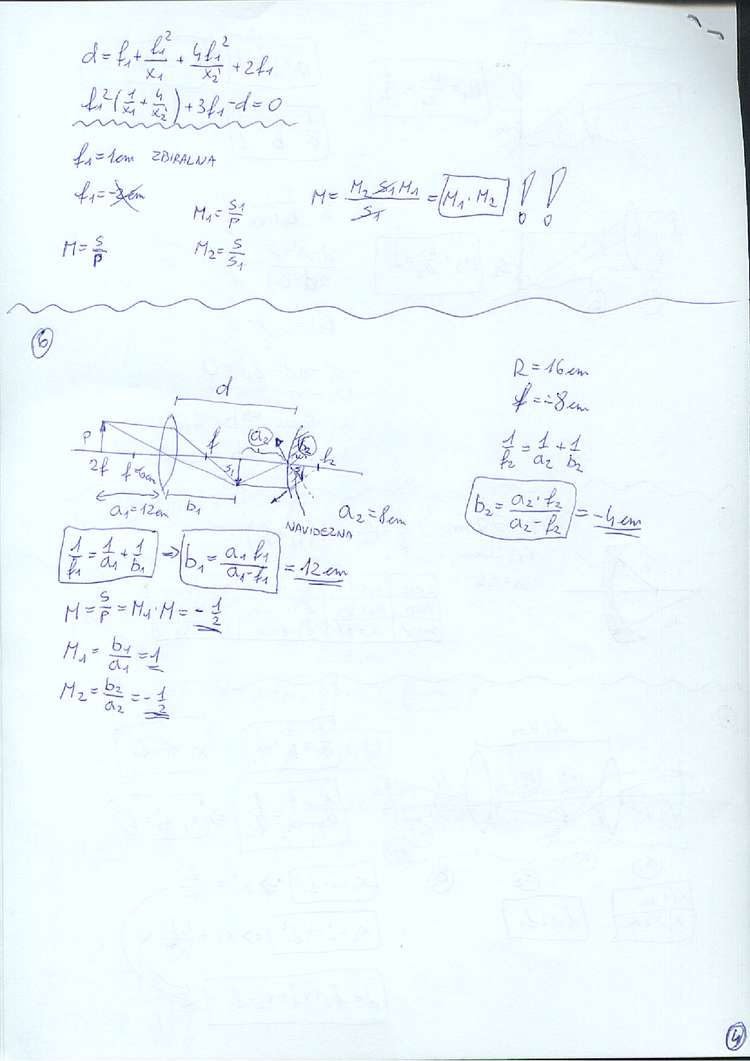 d = f₁ + f₁²/x₁ + 4f₁²/x₂ + 2f₁
f₁² (1/x₁ + 4/x₂) + 3f₁ - d = 0
f₁ = 1cm ZBIRALNA
f₁ = -2cm
M₁ = S₁/P
M = M₂ S₁ M₁/S₁ = M₁ · M₂ !!
M = S/P
M₂ = S/S₁
6
R = 16cm
f = -8cm
1/f₂ = 1/a₂ + 1/b₂
b₂ = a₂ · f₂/a₂ - f₂ = -4cm
d
P
2f
f
6cm
f
S₁
a₂
b₂
f₂
a₁ = 12cm
b₁
NAVIDEZNA
a₂ = 8cm
1/f₁ = 1/a₁ + 1/b₁ → b₁ = a₁ f₁/a₁ - f₁ = 12cm
M = S/P = M₁ · M = - 1/2
M₁ = b₁/a₁ = 1
M₂ = b₂/a₂ = - 1/2
4